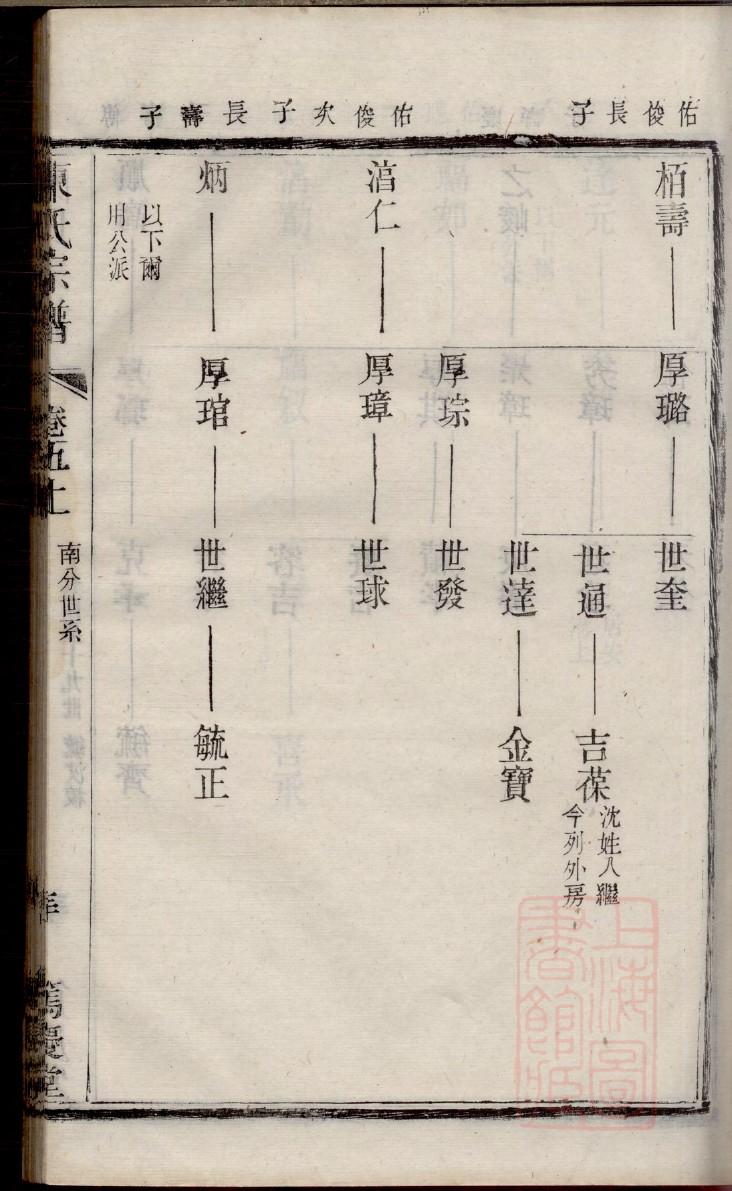 佑俊長子
佑俊次子
長壽子
栢壽
厚璐
世奎
世通
吉葆
沈姓入繼
今列外房
世達
金寶
厚琮
世發
仁
厚璋
世球
炳
厚琯
世繼
毓正
以下爾
用公派
氏宗譜
卷五上
南分世系
篤慶堂
上海圖書館藏